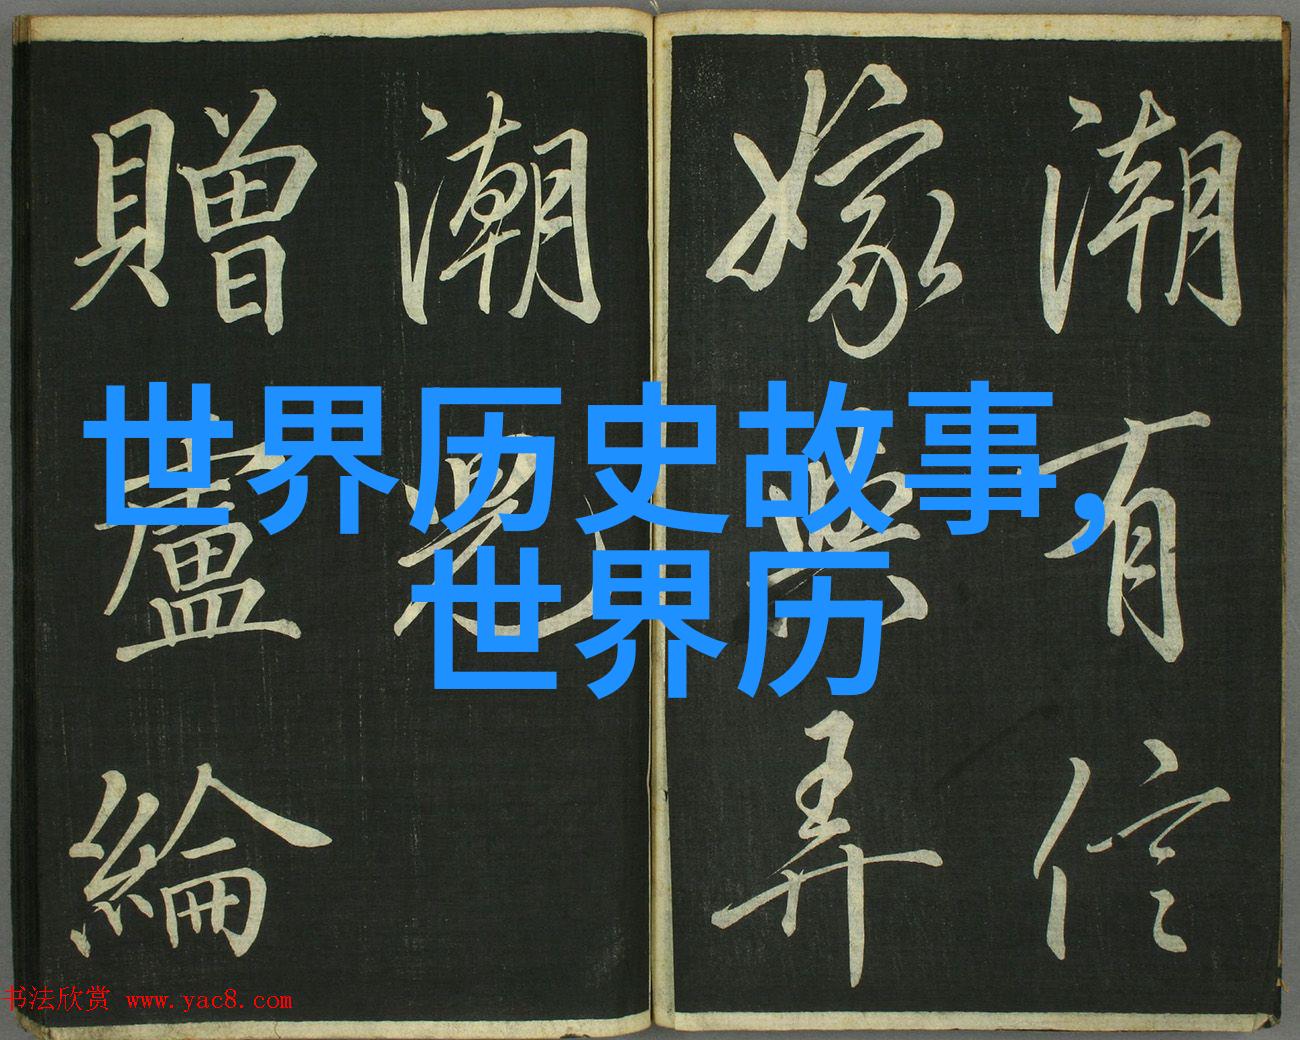 世界历史故事,
世界历
潮有信
嫁與弄
潮兒
贈盧綸
书法欣赏 www.yac8.com